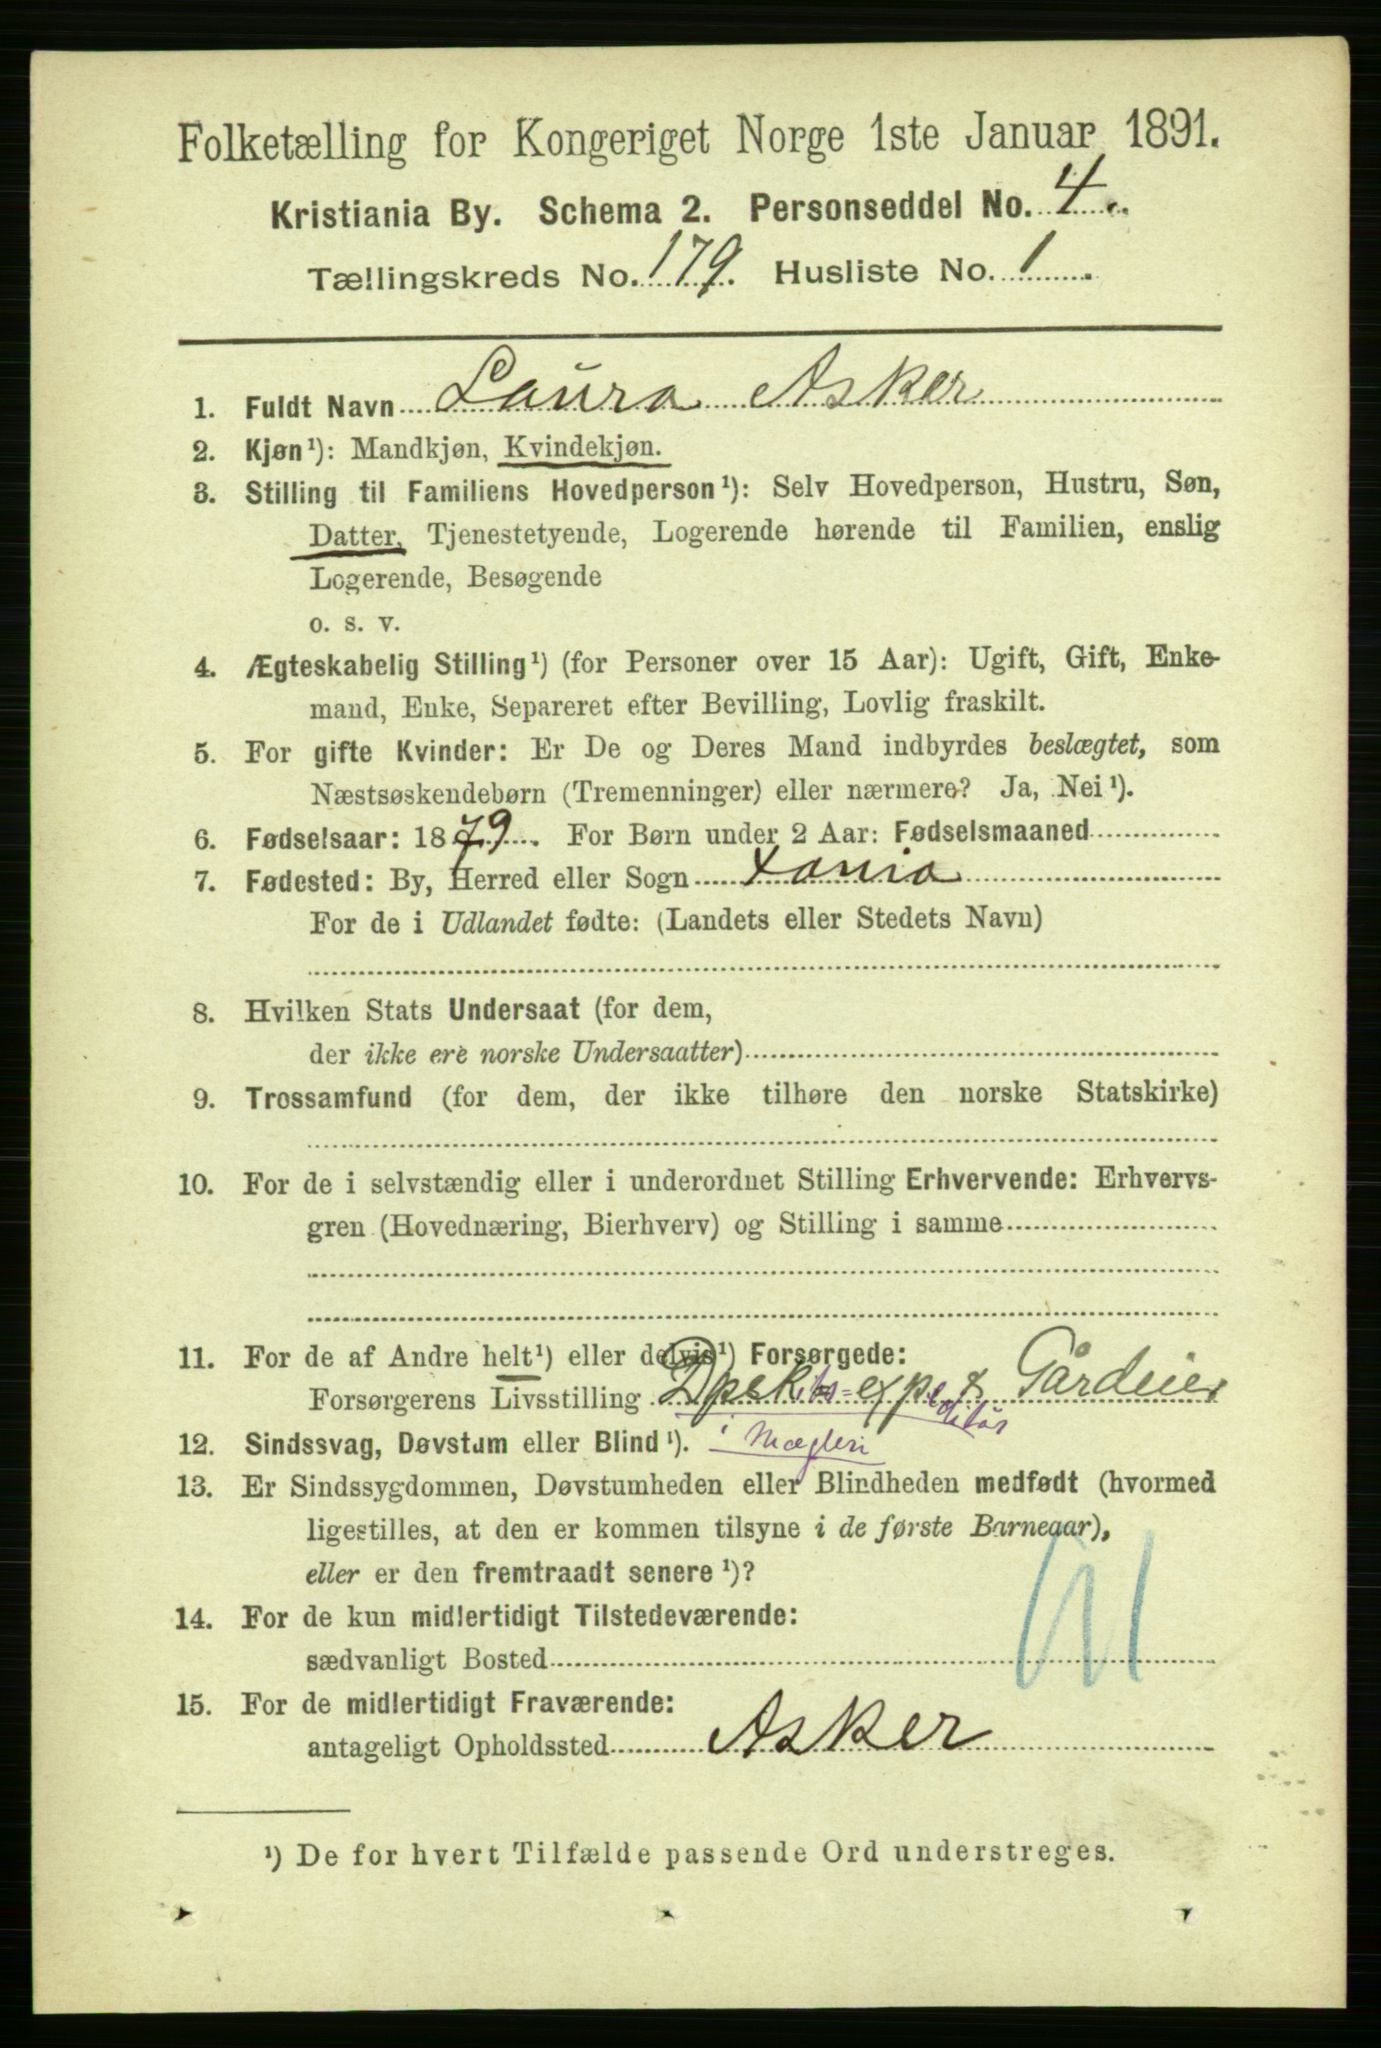 Folketælling for Kongeriget Norge 1ste Januar 1891.
Kristiania By. Schema 2. Personseddel No. 4.
Tællingskreds No. 179. Husliste No. 1
1. Fuldt Navn Laura Asker
2. Kjøn¹): Mandkjøn, Kvindekjøn.
3. Stilling til Familiens Hovedperson¹): Selv Hovedperson, Hustru, Søn,
Datter, Tjenestetyende, Logerende hørende til Familien, enslig
Logerende, Besøgende
o. s. v.
4. Ægteskabelig Stilling¹) (for Personer over 15 Aar): Ugift, Gift, Enke-
mand, Enke, Separeret efter Bevilling, Lovlig fraskilt.
5. For gifte Kvinder: Er De og Deres Mand indbyrdes beslægtet, som
Næstsøskendebørn (Tremenninger) eller nærmere? Ja, Nei¹).
6. Fødselsaar: 1879. For Børn under 2 Aar: Fødselsmaaned
7. Fødested: By, Herred eller Sogn Xania
For de i Udlandet fødte: (Landets eller Stedets Navn)
8. Hvilken Stats Undersaat (for dem,
der ikke ere norske Undersaatter)
9. Trossamfund (for dem, der ikke tilhøre den norske Statskirke)
10. For de i selvstændig eller i underordnet Stilling Erhvervende: Erhvervs-
gren (Hovednæring, Bierhverv) og Stilling i samme
11. For de af Andre helt¹) eller delvis¹) Forsørgede:
Forsørgerens Livsstilling & Gårdeier
i Mægleri
12. Sindssvag, Døvstum eller Blind¹).
13. Er Sindssygdommen, Døvstumheden eller Blindheden medfødt (hvormed
ligestilles, at den er kommen tilsyne i de første Barneaar),
eller er den fremtraadt senere¹)?
14. For de kun midlertidigt Tilstedeværende:
sædvanligt Bosted
15. For de midlertidigt Fraværende:
antageligt Opholdssted Asker
¹) De for hvert Tilfælde passende Ord understreges.